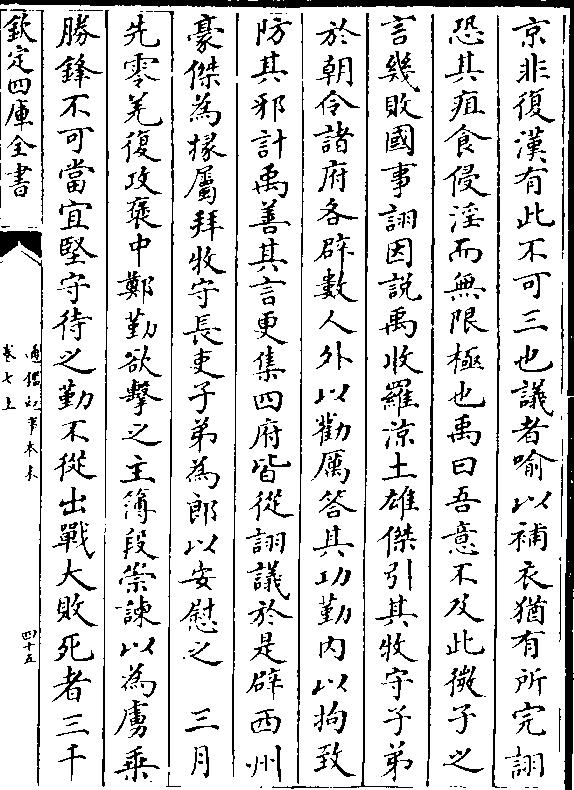 京非復漢有此不可三也議者喻以補衣猶有所完詡
恐其疽食侵淫而無限極也禹曰吾意不及此微子之
言幾敗國事詡因説禹收羅涼土雄傑引其牧守子弟
於朝令諸府各辟數人外以勸厲答其功勤内以拘致
防其邪計禹善其言更集四府皆從詡議於是辟西州
豪傑為掾屬拜牧守長吏子弟為郎以安慰之　三月
先零羌復攻褒中鄭勤欲擊之主簿段崇諫以為虜乗
勝鋒不可當宜堅守待之勤不從出戰大敗死者三千
欽定四庫全書
通鑑紀事本末
卷七上
四十五